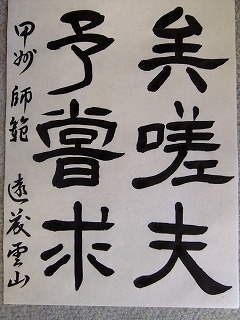 矣嗟夫
予嘗求
甲州 師範 遠藤雲山